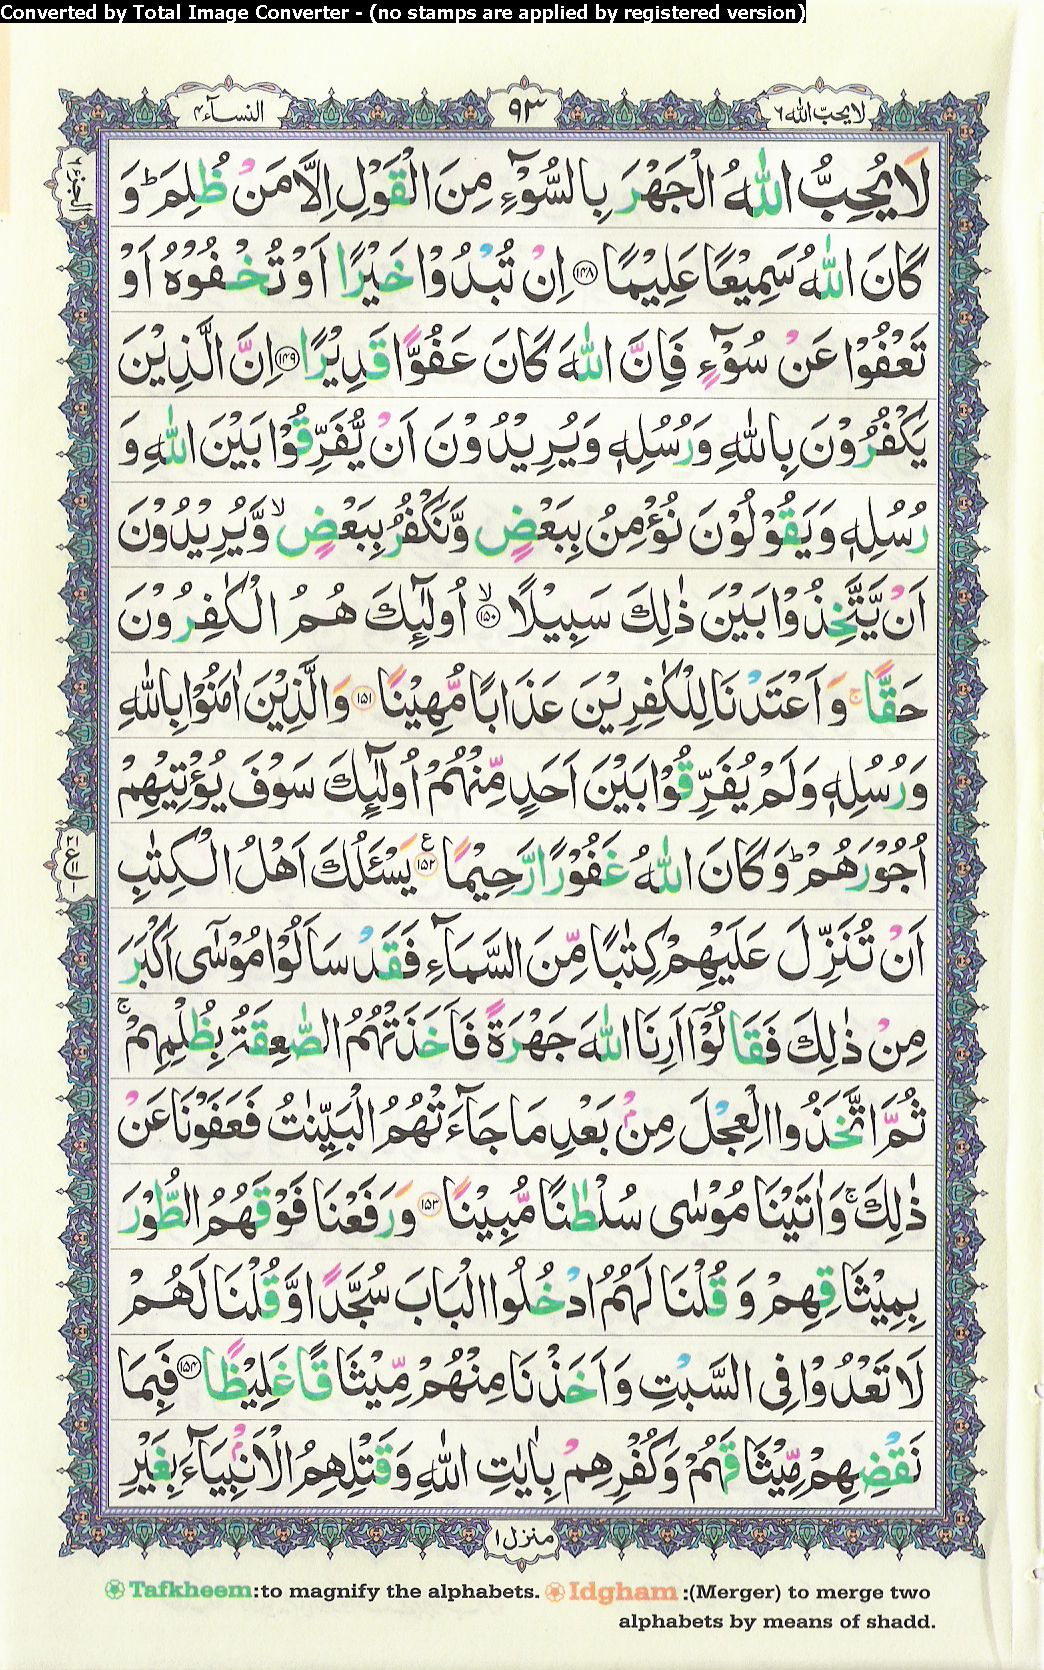 Converted by Total Image Converter - (no stamps are applied by registered version)
لا یحبّ الله ٦
٩٣
النسآء ٤
لَا یُحِبُّ اللّٰهُ الْجَهْرَ بِالسُّوْٓءِ مِنَ الْقَوْلِ اِلَّا مَنْ ظُلِمَ ؕ وَ
كَانَ اللّٰهُ سَمِیْعًا عَلِیْمًا ﴿۱۴۸﴾ اِنْ تُبْدُوْا خَیْرًا اَوْ تُخْفُوْهُ اَوْ
تَعْفُوْا عَنْ سُوْٓءٍ فَاِنَّ اللّٰهَ كَانَ عَفُوًّا قَدِیْرًا ﴿۱۴۹﴾ اِنَّ الَّذِیْنَ
یَكْفُرُوْنَ بِاللّٰهِ وَرُسُلِهٖ وَیُرِیْدُوْنَ اَنْ یُّفَرِّقُوْا بَیْنَ اللّٰهِ وَ
رُسُلِهٖ وَیَقُوْلُوْنَ نُؤْمِنُ بِبَعْضٍ وَّنَكْفُرُ بِبَعْضٍ ۙ وَّیُرِیْدُوْنَ
اَنْ یَّتَّخِذُوْا بَیْنَ ذٰلِكَ سَبِیْلًا ۙ﴿۱۵۰﴾ اُولٰٓئِكَ هُمُ الْكٰفِرُوْنَ
حَقًّا ۚ وَاَعْتَدْنَا لِلْكٰفِرِیْنَ عَذَابًا مُّهِیْنًا ﴿۱۵۱﴾ وَالَّذِیْنَ اٰمَنُوْا بِاللّٰهِ
وَرُسُلِهٖ وَلَمْ یُفَرِّقُوْا بَیْنَ اَحَدٍ مِّنْهُمْ اُولٰٓئِكَ سَوْفَ یُؤْتِیْهِمْ
اُجُوْرَهُمْ ؕ وَكَانَ اللّٰهُ غَفُوْرًا رَّحِیْمًا ﴿۱۵۲﴾ ع یَسْـَٔلُكَ اَهْلُ الْكِتٰبِ
اَنْ تُنَزِّلَ عَلَیْهِمْ كِتٰبًا مِّنَ السَّمَآءِ فَقَدْ سَاَلُوْا مُوْسٰۤی اَكْبَرَ
مِنْ ذٰلِكَ فَقَالُوْۤا اَرِنَا اللّٰهَ جَهْرَةً فَاَخَذَتْهُمُ الصّٰعِقَةُ بِظُلْمِهِمْ ۚ
ثُمَّ اتَّخَذُوا الْعِجْلَ مِنْۢ بَعْدِ مَا جَآءَتْهُمُ الْبَیِّنٰتُ فَعَفَوْنَا عَنْ
ذٰلِكَ ۚ وَاٰتَیْنَا مُوْسٰی سُلْطٰنًا مُّبِیْنًا ﴿۱۵۳﴾ وَرَفَعْنَا فَوْقَهُمُ الطُّوْرَ
بِمِیْثَاقِهِمْ وَقُلْنَا لَهُمُ ادْخُلُوا الْبَابَ سُجَّدًا وَّقُلْنَا لَهُمْ
لَا تَعْدُوْا فِی السَّبْتِ وَاَخَذْنَا مِنْهُمْ مِّیْثَاقًا غَلِیْظًا ﴿۱۵۴﴾ فَبِمَا
نَقْضِهِمْ مِّیْثَاقَهُمْ وَكُفْرِهِمْ بِاٰیٰتِ اللّٰهِ وَقَتْلِهِمُ الْاَنْۢبِیَآءَ بِغَیْرِ
منزل ۱
Tafkheem:to magnify the alphabets. Idgham :(Merger) to merge two
alphabets by means of shadd.